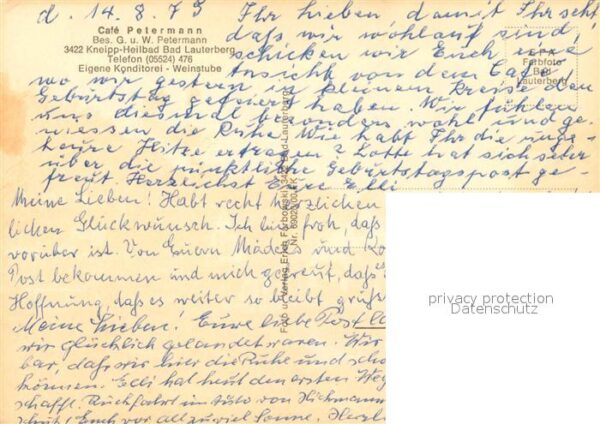 d. 14.8.75
Café Petermann
Bes. G. u. W. Petermann
3422 Kneipp-Heilbad Bad Lauterberg
Telefon (05524) 476
Eigene Konditorei - Weinstube
Farbfoto
Bad
Lauterberg
Ihr lieben, damit Ihr seht
daß wir wohlauf sind,
schicken wir Euch eine
Ansicht von dem Café
wo wir gestern in kleinem Kreise den
Geburtstag gefeiert haben. Wir fühlen
uns diesmal besonders wohl und ge-
niessen die Ruhe. Wie habt Ihr die unge-
heure Hitze ertragen? Lotte hat sich sehr
über die pünktliche Geburtstagspost ge-
freut Herzlichst Eure Elli
Meine Lieben! Habt recht herzlichen
lichen Glückwunsch. Ich bin froh, daß
vorüber ist. Von Euern Mädels und
Post bekommen und mich gefreut, daß
Hoffnung, daß es weiter so bleibt, grüßt
Meine Lieben! Eure liebe Post
wir glücklich gelandet waren. Wir
bar, daß wir hier die Ruhe und
können. Edi hat heut den ersten Weg
schafft. Rückfahrt im Auto von Hickmann
Euch vor allzuviel Sonne. Herzl
Foto u. Verlag Erich Farbowski, 3422 Bad-Lauterberg
privacy protection
Datenschutz